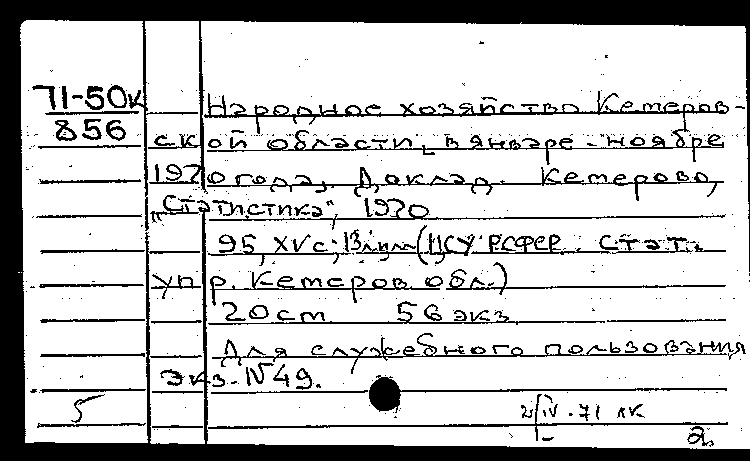 71-50к
856
Народное хозяйство Кемеров-
ской области в январе - ноябре
1970 года. Доклад. Кемерово,
„Статистика", 1970
95, XV с; (ЦСУ РСФСР. Стат.
упр. Кемеров обл.)
20 см 56 экз
Для служебного пользования
Экз. №49.
5
IV.71
2.